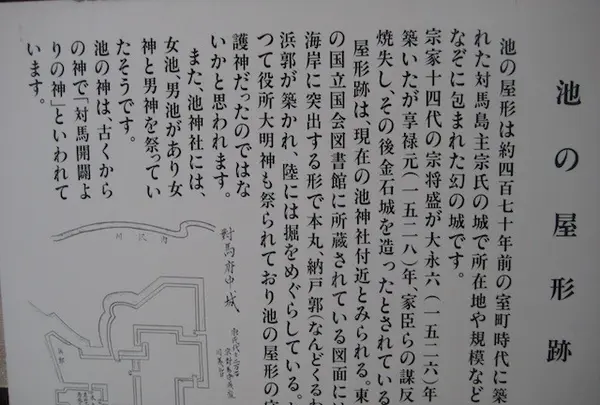 池の屋形跡
池の屋形は約四百七十年前の室町時代に築
れた対馬島主宗氏の城で所在地や規模など
なぞに包まれた幻の城です。
宗家十四代の宗将盛が大永六(一五二六)年
築いたが享禄元(一五二八)年、家臣らの謀反
焼失し、その後金石城を造ったとされている
屋形跡は、現在の池神社付近とみられる。東
の国立国会図書館に所蔵されている図面には
海岸に突出する形で本丸、納戸郭(なんどくるわ
浜郭が築かれ、陸には掘をめぐらしている。
つて役所大明神も祭られており池の屋形の守
護神だったのではな
いかと思われます。
また、池神社には、
女池、男池があり女
神と男神を祭ってい
たそうです。
池の神は、古くから
の神で「対馬開闢よ
りの神」といわれて
います。
對馬府中城